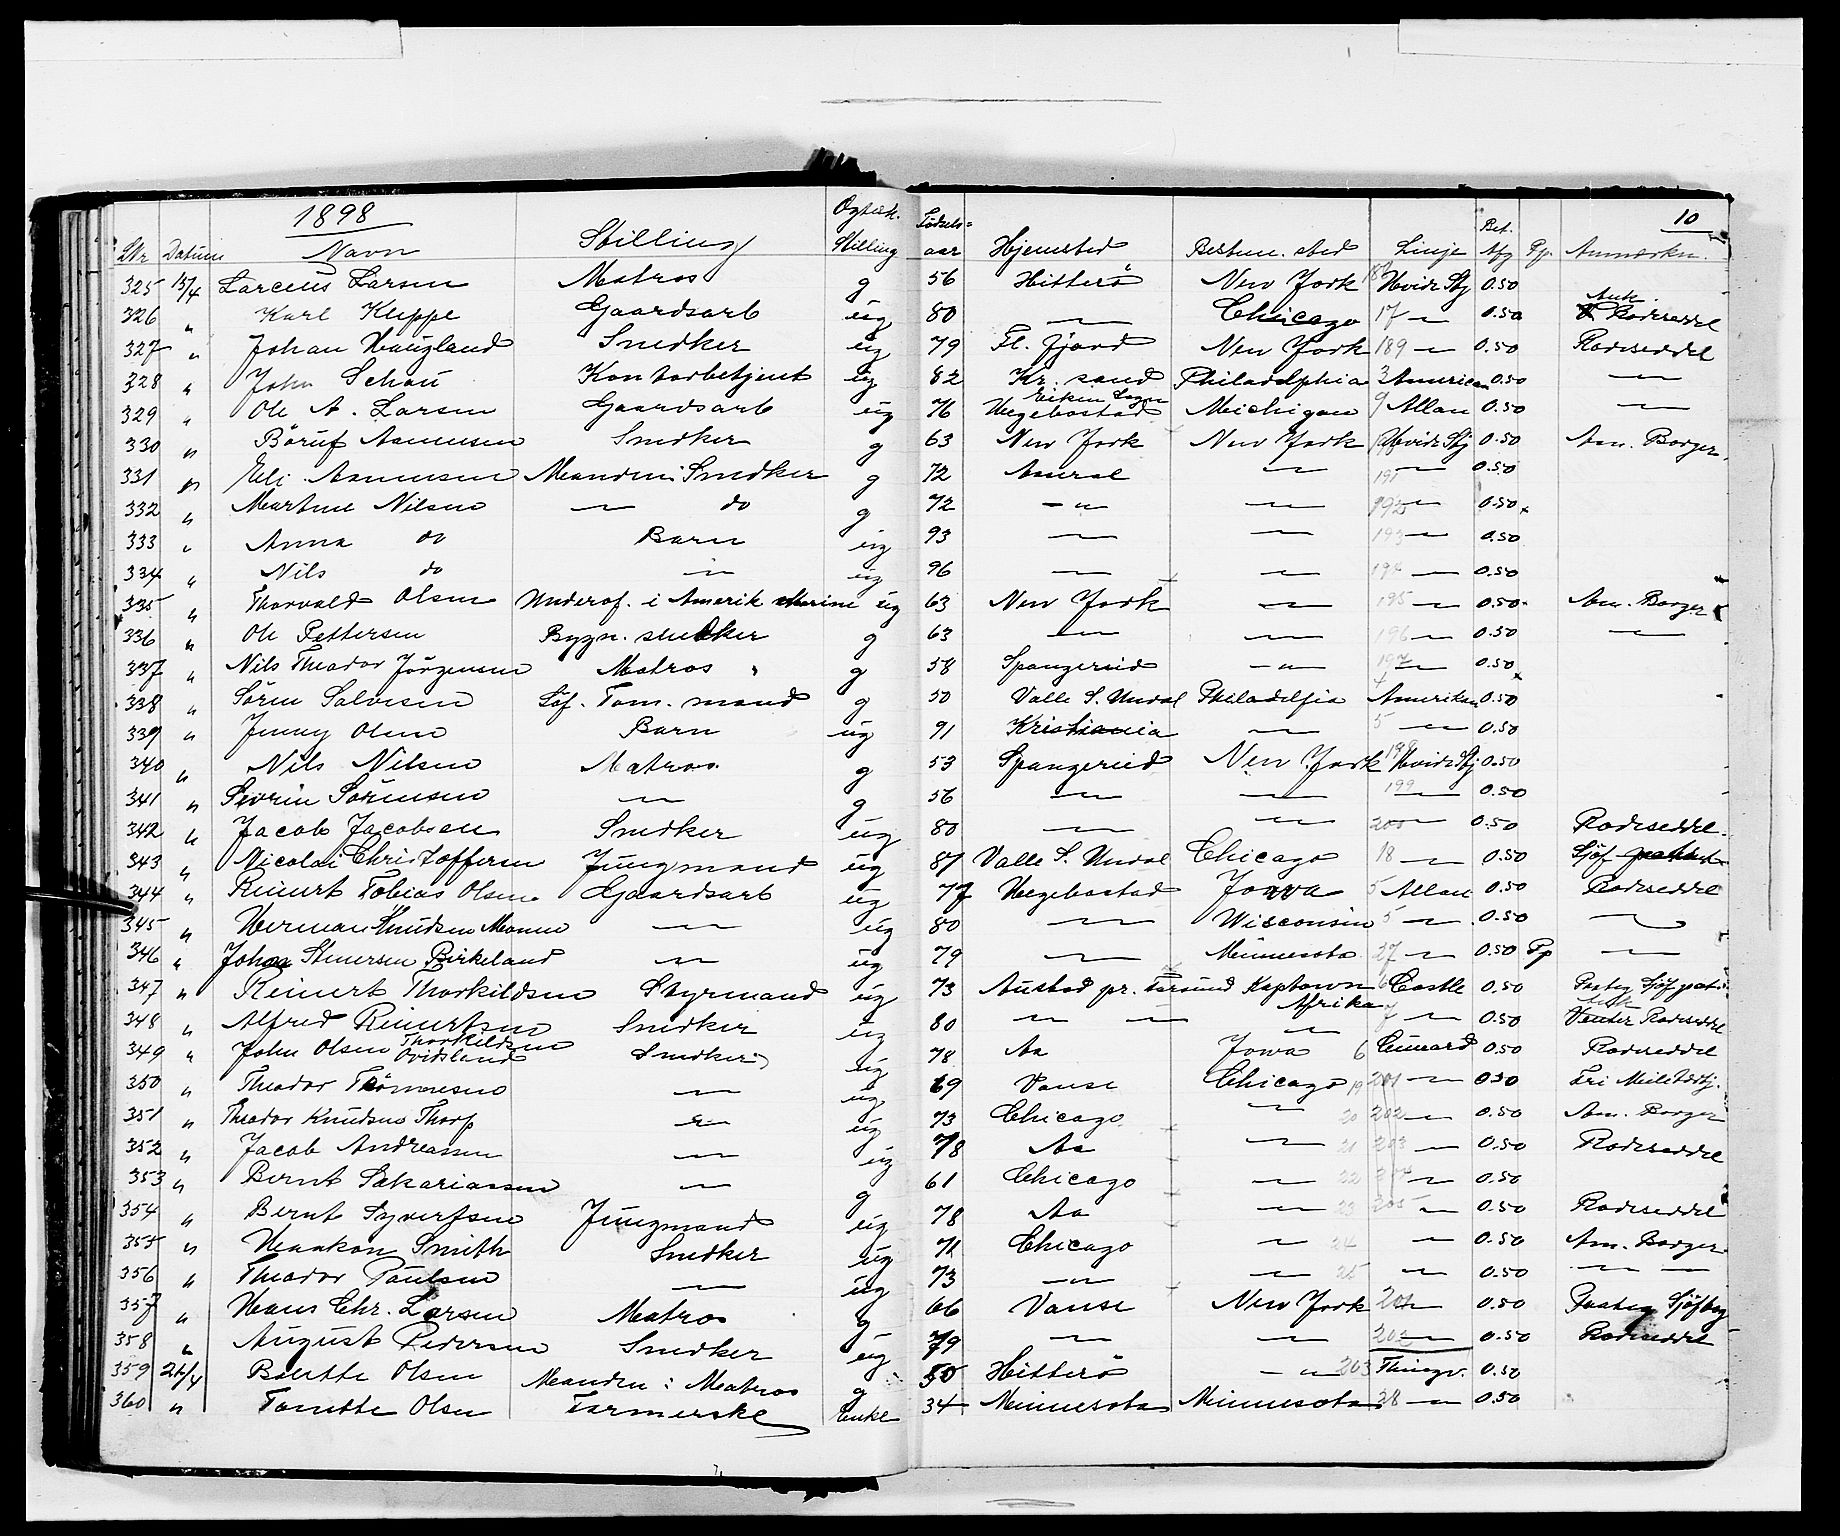 1898 Ogtsk. Fødsels= Bet. 10
Nr Datum Navn Stilling Stilling aar Hjemsted Bestem. sted Linje Afg Pp. Anmærkn.
325 15/4 Larsen Matros g 56 Hitterö New York Hvide Stj 0.50
326 " Karl Kleppe Gaardsarb ug 80 — Chicago 17 — 0.50 Rodeseddel
327 " Johan Haugland Snedker ug 79 Fl. fjord New York 189 — 0.50 Rodeseddel
328 " John Schau Kontorbetjent ug 82 Kr. sand Philadelphia 3 American 0.50 —
329 " Ole A. Larsen Gaardsarb ug 76 Hegebostad Eiken Sogn Michigan 9 Allan 0.50 —
330 " Asmussen Snedker g 63 New York New York Hvide Stj 0.50 Am. Borger
331 " Eli Asmussen Manden: Snedker g 72 — 191 — 0.50
332 " Martine Nilsen — do g 72 — " — — 192 — 0.50
333 " Anna do Barn ug 93 — — 193 — 0.50
334 " Nils do — ug 96 — — 194 — 0.50
335 " Thorvald Olsen Underof. i Amerik Marine ug 63 New York — 195 — 0.50 Am. Borger
336 " Ole Pettersen Bygn. snedker g 63 — — 196 — 0.50 —
337 " Nils Theodor Jörgensen Matros g 58 Spangereid — " — 197 — 0.50
338 " Sören Salvesen Söf. Tøm. mand g 50 Valle S. Undal Philadelfia 4 Amerikan 0.50
339 " Jenny Olsen Barn ug 91 Kristiania — 5 — 0.50
340 " Nils Nilsen Matros g 53 Spangereid New York 198 Hvide Stj 0.50
341 " Severin Sörensen — g 56 — — 199 — 0.50
342 " Jacob Jacobsen Snedker ug 80 — — 200 — 0.50 Rodeseddel
343 " Nicolai Christoffersen Jungmand ug 81 Valle S. Undal Chicago 18 — 0.50 Sjöf
344 " Reinert Tobias Olsen Gaardsarb ug 77 Hegebostad Jowa 5 Allan 0.50 Rodeseddel
345 " Herman Knudsen — ug 80 — Wisconsin 5 — 0.50 —
346 " Johan Stenersen Birkeland — ug 79 — Minnesota 27 — 0.50 Pp —
347 " Reinert Thorkildsen Styrmand ug 73 Austad pr. Farsund Kaptown Afrika 6 Castle 0.50
348 " Alfred Reinertsen Snedker ug 80 — — — 7 — 0.50 Rodeseddel
349 " John Olsen Thorkildsen Ovidsland Snedker ug 78 Aa Jowa 6 Cunard 0.50 Rodeseddel
350 " Theodor Tönnesen — ug 69 Vanse Chicago 19 201 — 0.50 Fri Militærtj.
351 " Theodor Knudsen Thorp — ug 73 Chicago — 20 202 — 0.50 Am. Borger
352 " Jacob Andreassen — ug 78 Aa — 21 203 — 0.50 Rodeseddel
353 " Bernt Sakariassen — g 61 Chicago — 22 204 — 0.50
354 " Bernt Syvertsen Jungmand ug 78 Aa — 23 205 — 0.50 Rodeseddel
355 " Haakon Smith Snedker ug 71 Chicago — 24 — 0.50 Am. Borger
356 " Theodor Paulsen — ug 73 — " — — 25 — 0.50 — —
357 " Hans Chr. Larsen Matros g 66 Vanse New York — 0.50 Sjöfbog
358 " August Pedersen Snedker ug 79 — — 202 — 0.50 Rodeseddel
359 21/4 Olsen Manden: Matros g 50 Hitterö — " — 203 Thingv. 0.50
360 " Tomette Olsen Farmerske Enke 34 Minnesota Minnesota 28 — 0.50